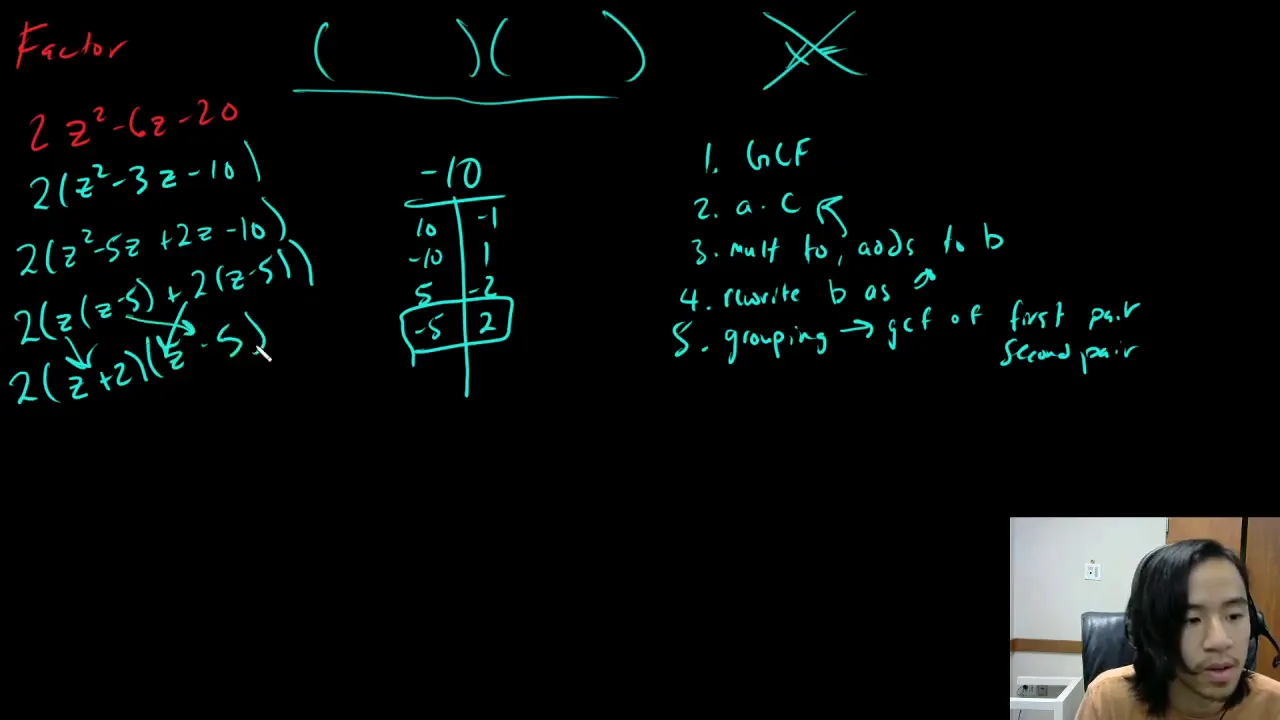 Factor
( )( )
2z²-6z-20
2(z²-3z-10)
2(z²-5z+2z-10)
2(z(z-5)+2(z-5))
2(z+2)(z-5)
-10
10 -1
-10 1
5 -2
-5 2
1. GCF
2. a.c
3. mult to, adds to b
4. rewrite b as
5. grouping → gcf of first pair
second pair